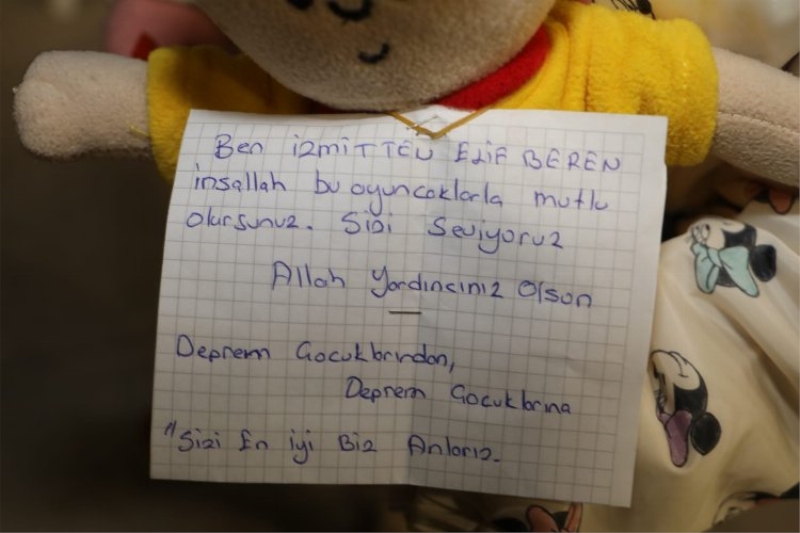 Ben izmiTTEN ELİF BEREN
inşallah bu oyuncaklarla mutlu
olursunuz. Sizi Seviyoruz
Allah Yardıncınız Olson
Deprem Çocuklarından,
Deprem Çocuklarına
"Sizi En iyi Biz Anlarız.